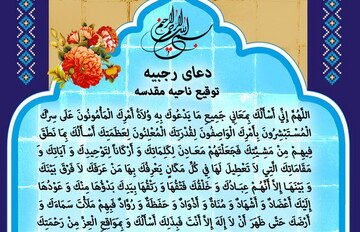 بسم الله الرحمن الرحیم
دعای رجبیه
توقیع ناحیه مقدسه
اَللّهُمَّ اِنّی اَسْأَلُکَ بِمَعانی جَمیعِ ما یَدْعُوکَ بِهِ وُلاةُ اَمْرِکَ الْمَأْمُونُونَ عَلی سِرِّکَ
الْمُسْتَبْشِرُونَ بِاَمْرِکَ الْواصِفُونَ لِقُدْرَتِکَ الْمُعْلِنُونَ لِعَظَمَتِکَ اَسْأَلُکَ بِما نَطَقَ
فیهِمْ مِنْ مَشِیَّتِکَ فَجَعَلْتَهُمْ مَعادِنَ لِکَلِماتِکَ وَ اَرْکاناً لِتَوْحیدِکَ وَ آیاتِکَ وَ
مَقاماتِکَ الَّتی لا تَعْطیلَ لَها فی کُلِّ مَکانٍ یَعْرِفُکَ بِها مَنْ عَرَفَکَ لا فَرْقَ بَیْنَکَ
وَ بَیْنَها اِلاّ اَنَّهُمْ عِبادُکَ وَ خَلْقُکَ فَتْقُها وَ رَتْقُها بِیَدِکَ بَدْؤُها مِنْکَ وَ عَوْدُها
اِلَیْکَ اَعْضادٌ وَ اَشْهادٌ وَ مُناةٌ وَ اَذْوادٌ وَ حَفَظَةٌ وَ رُوّادٌ فَبِهِمْ مَلَأْتَ سَماءَکَ وَ
اَرْضَکَ حَتّی ظَهَرَ اَنْ لا اِلهَ اِلاّ اَنْتَ فَبِذلِکَ اَسْأَلُکَ وَ بِمَواقِعِ الْعِزِّ مِنْ رَحْمَتِکَ